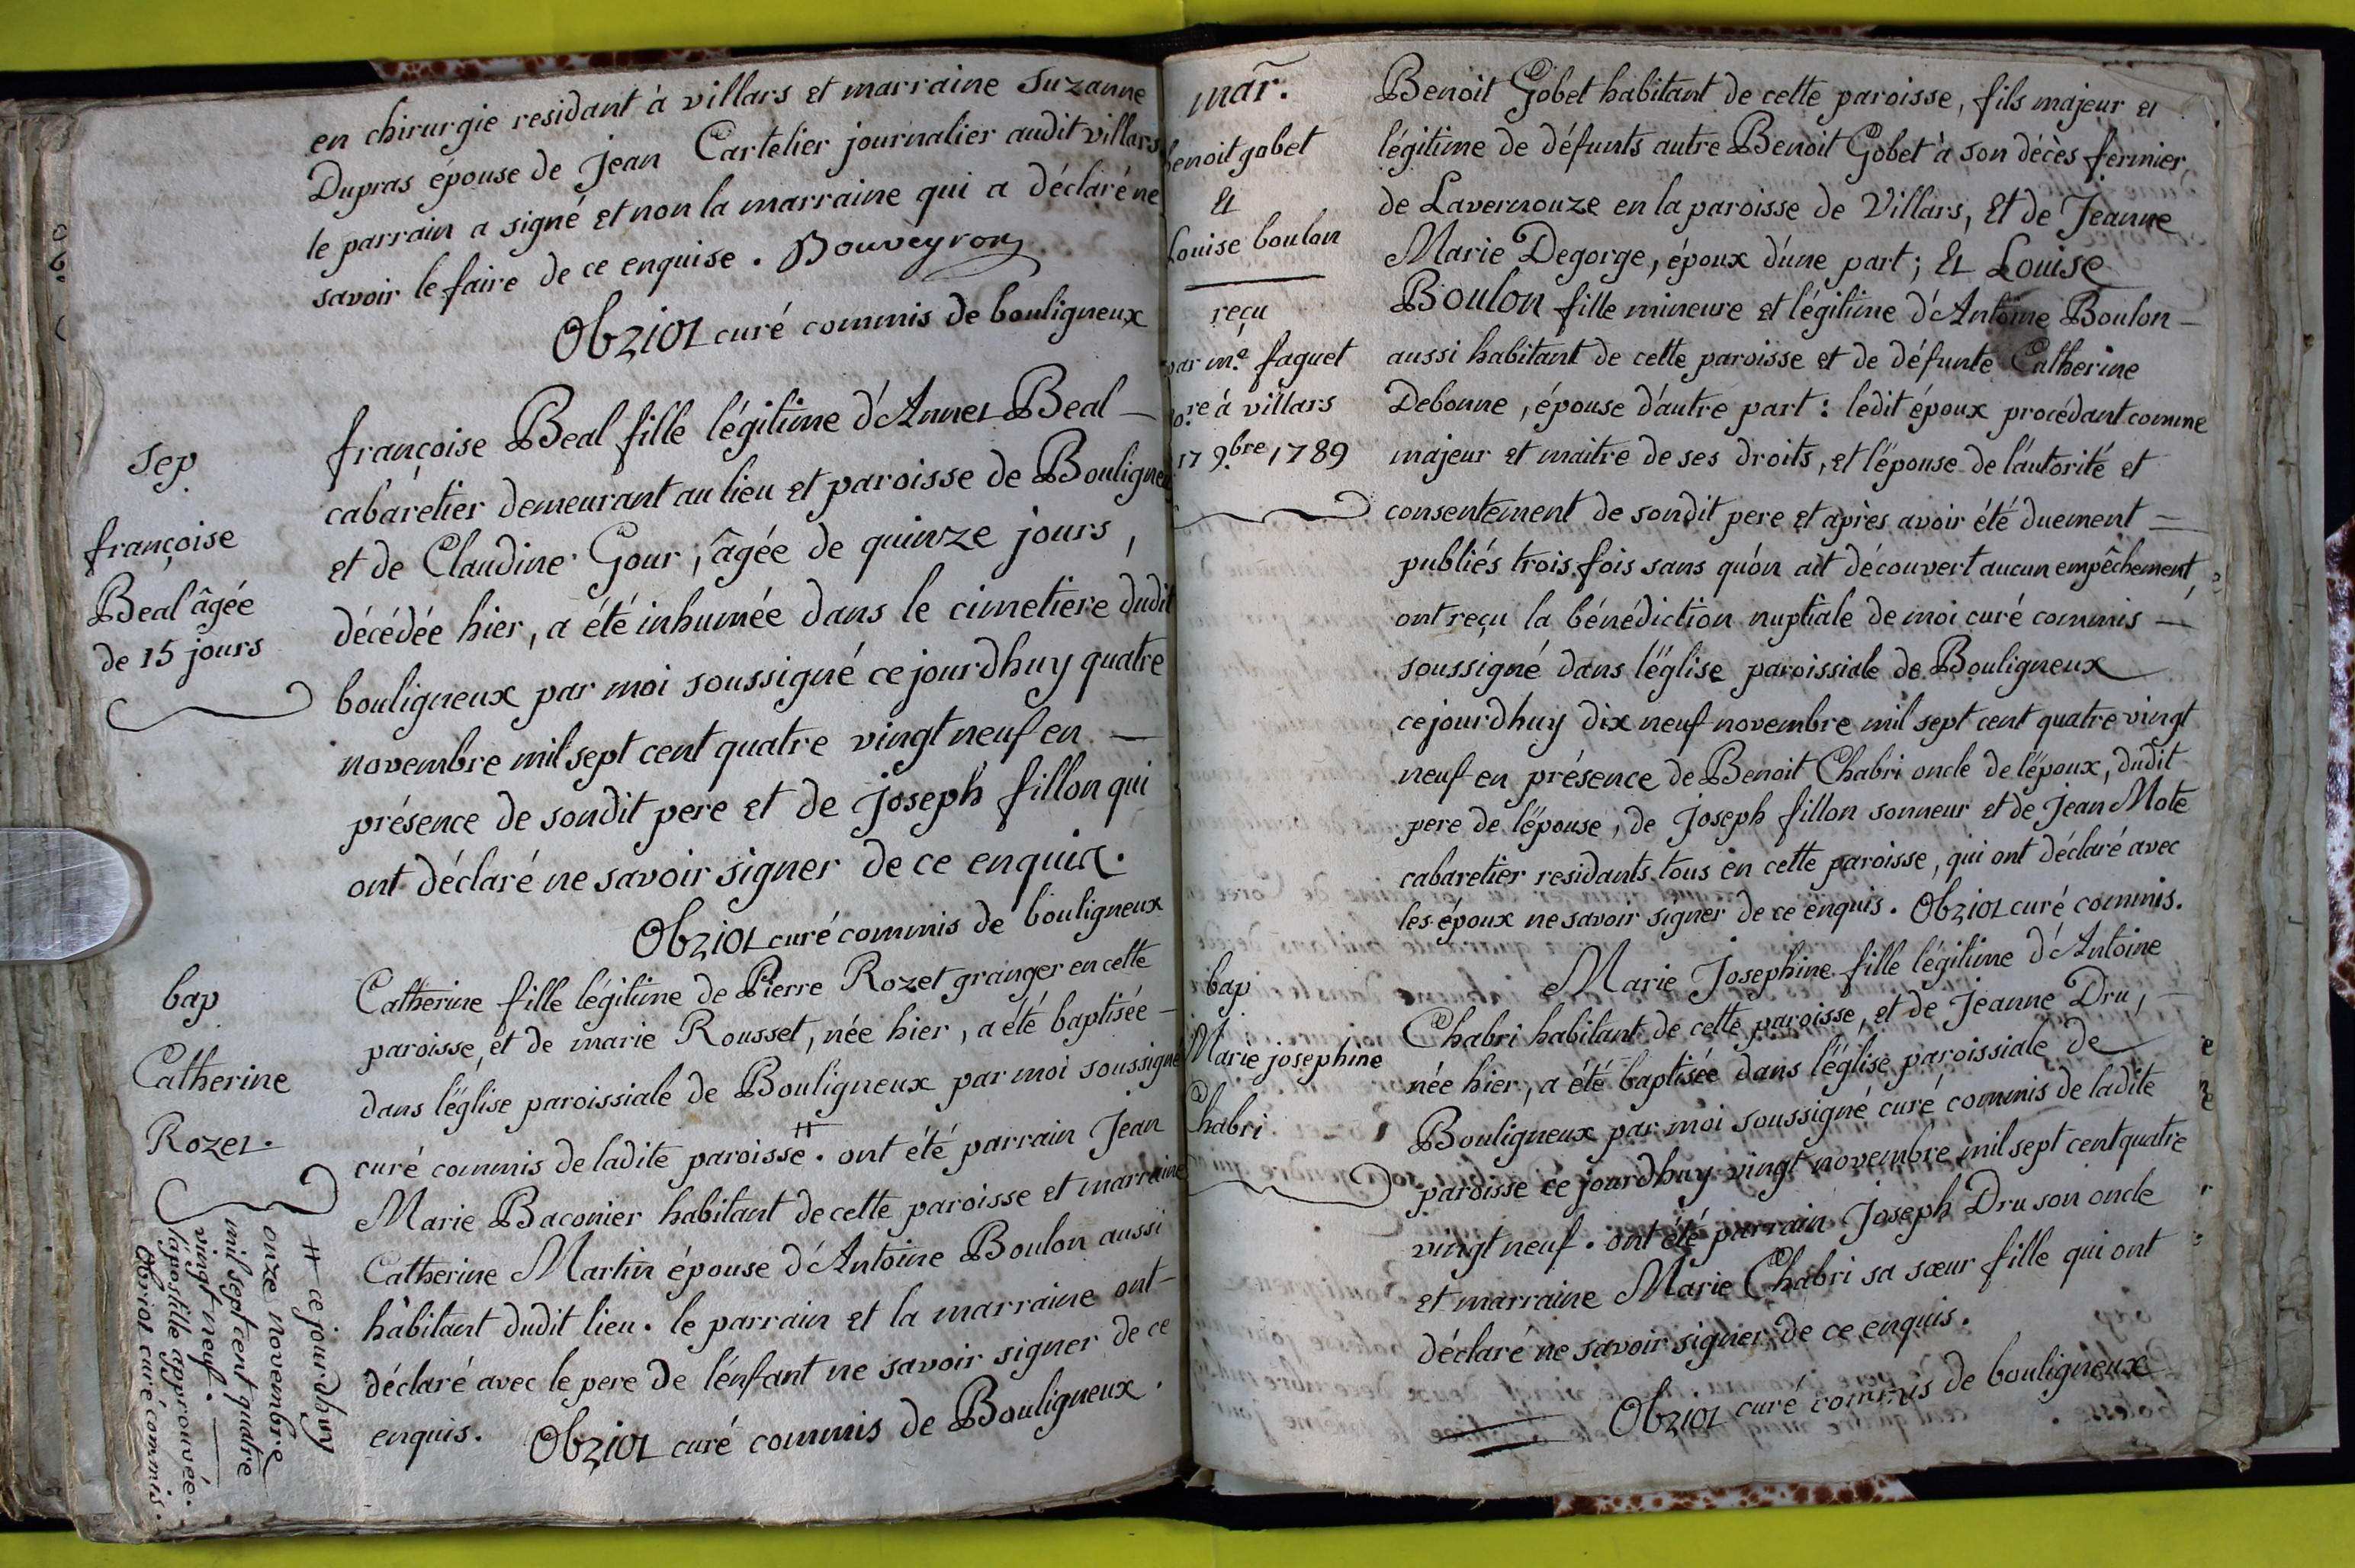 en chirurgie residant à villars et marraine Suzanne
Dupras épouse de Jean Cartelier journalier audit villars
le parrain a signé et non la marraine qui a déclaré ne
savoir le faire de ce enquise. Bouveyron
Obriot curé commis de bouligneux
Sep
françoise
Beal âgée
de 15 jours
françoise Beal fille légitime d'Annet Beal
cabaretier demeurant au lieu et paroisse de Bouligneux
et de Claudine Gour, âgée de quinze jours,
décédée hier, a été inhumée dans le cimetiere dudit
bouligneux par moi soussigné ce jourdhuy quatre
novembre mil sept cent quatre vingt neuf en
présence de sondit pere et de joseph fillon qui
ont déclaré ne savoir signer de ce enquis.
Obriot curé commis de bouligneux
bap
Catherine
Rozet.
Catherine fille légitime de Pierre Rozet granger en cette
paroisse, et de marie Rousset, née hier, a été baptisée
dans l'église paroissiale de Bouligneux par moi soussigné
curé commis de ladite paroisse. # ont été parrain Jean
Marie Baconier habitant de cette paroisse et marraine
Catherine Martin épouse d'Antoine Boulon aussi
habitant dudit lieu. le parrain et la marraine ont
déclaré avec le pere de l'enfant ne savoir signer de ce
enquis. Obriot curé commis de Bouligneux.
# ce jourdhuy
onze novembre
mil sept cent quatre
vingt neuf.
l'apostille approuvée.
Obriot curé commis.
mar.
benoit gobet
et
Louise boulon
reçu
par me. faguet
no.re à villars
17 9.bre 1789
Benoit Gobet habitant de cette paroisse, fils majeur et
légitime de défunts autre Benoit Gobet à son décès fermier
de Lavernouze en la paroisse de Villars, et de Jeanne
Marie Degorge, époux d'une part; et Louise
Boulon fille mineure et légitime d'Antoine Boulon
aussi habitant de cette paroisse et de défunte Catherine
Debonne, épouse d'autre part: ledit époux procédant comme
majeur et maitre de ses droits, et l'épouse de l'autorité et
consentement de sondit pere et après avoir été duement
publiés trois fois sans qu'on ait découvert aucun empêchement,
ont reçu la bénédiction nuptiale de moi curé commis
soussigné dans l'église paroissiale de Bouligneux
cejourdhuy dix neuf novembre mil sept cent quatre vingt
neuf en présence de Benoit Chabri oncle de l'époux, dudit
pere de l'épouse, de Joseph fillon sonneur et de Jean Mote
cabaretier residants tous en cette paroisse, qui ont déclaré avec
les époux ne savoir signer de ce enquis. Obriot curé commis.
bap
Marie josephine
Chabri
Marie Josephine fille légitime d'Antoine
Chabri habitant de cette paroisse, et de Jeanne Dru,
née hier, a été baptisée dans l'église paroissiale de
Bouligneux par moi soussigné curé commis de ladite
paroisse ce jourdhuy vingt novembre mil sept cent quatre
vingt neuf. ont été parrain Joseph Dru son oncle
et marraine Marie Chabri sa sœur fille qui ont
déclaré ne savoir signer de ce enquis.
Obriot curé commis de bouligneux